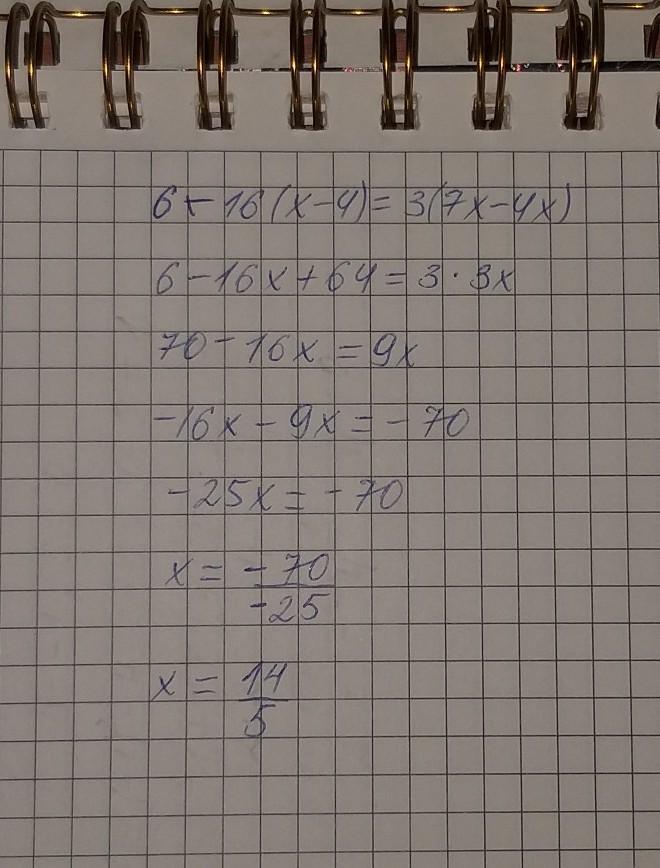 6 - 16(x-4) = 3(7x-4x)
6 - 16x + 64 = 3 · 3x
70 - 16x = 9x
-16x - 9x = -70
-25x = -70
x = -70/-25
x = 14/5